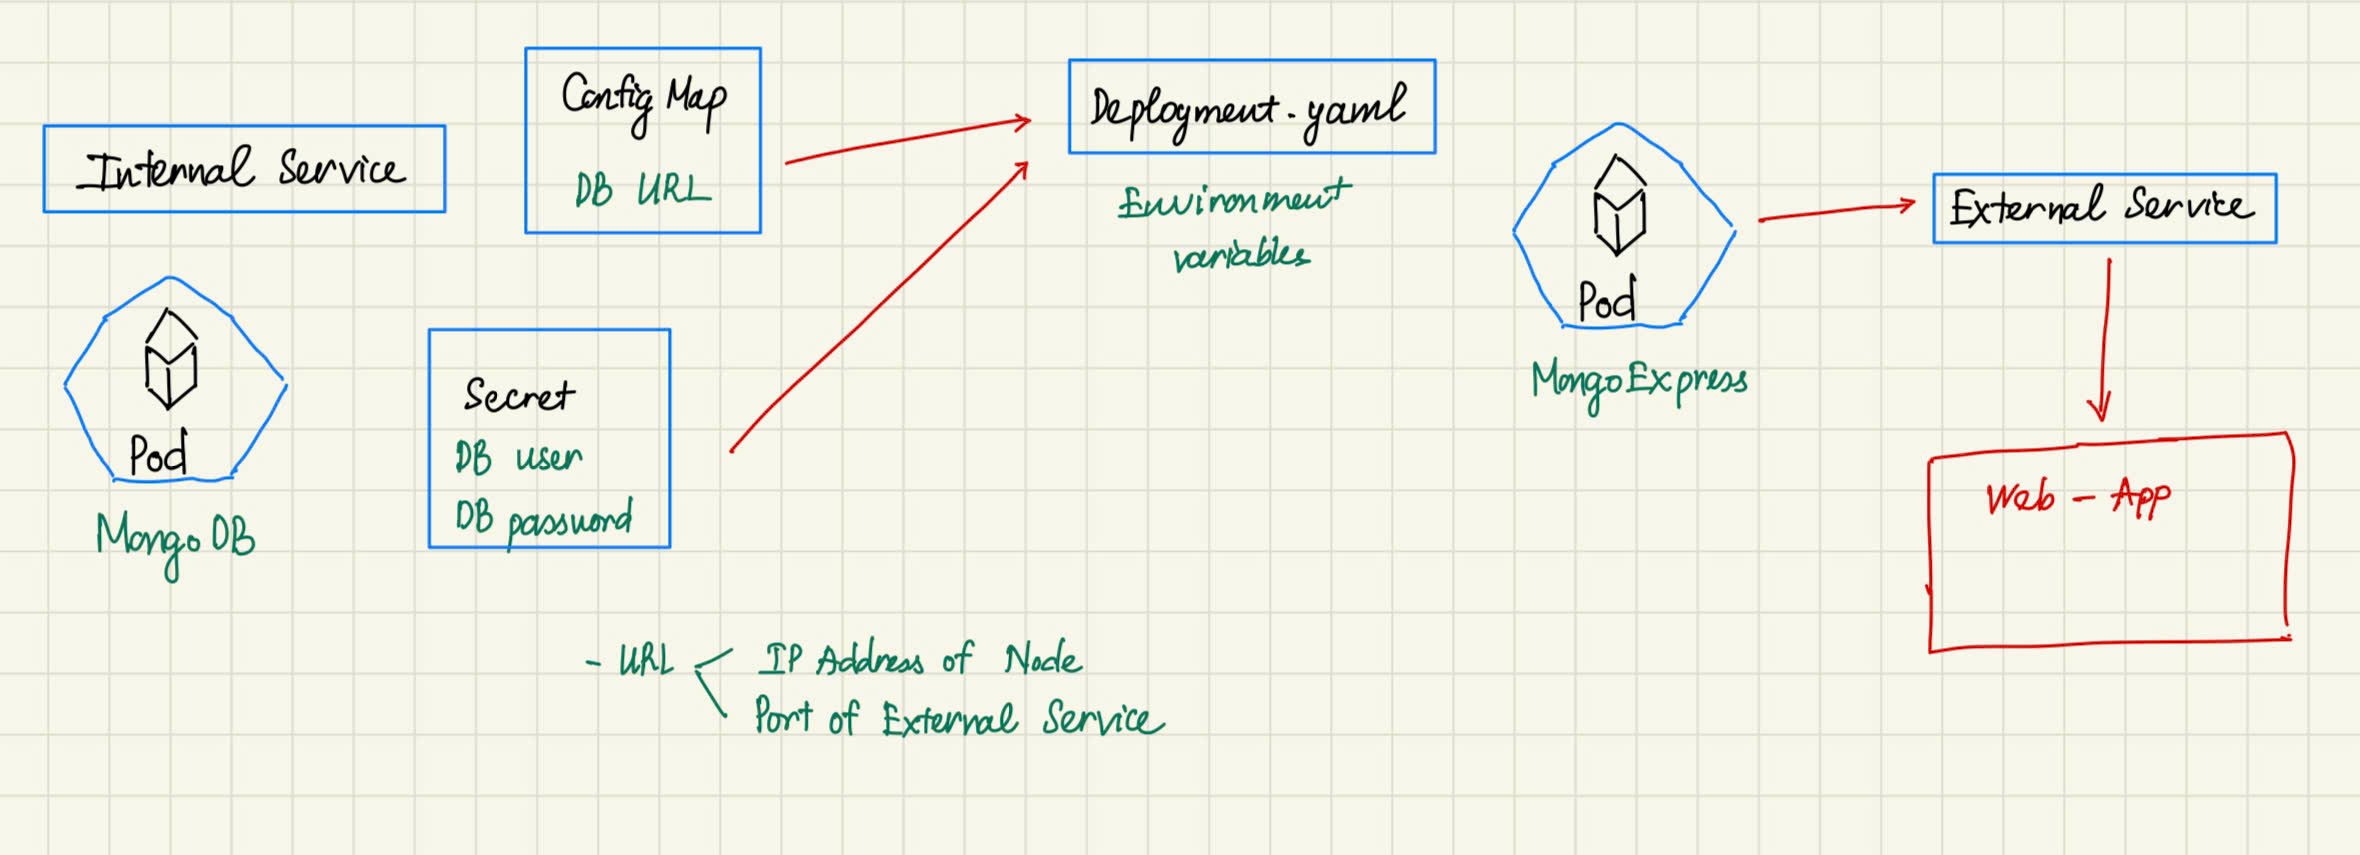 Internal Service
Pod
MongoDB
Config Map
DB URL
Secret
DB user
DB password
Deployment.yaml
Environment
variables
Pod
MongoExpress
External Service
Web - App
- URL
IP Address of Node
Port of External Service